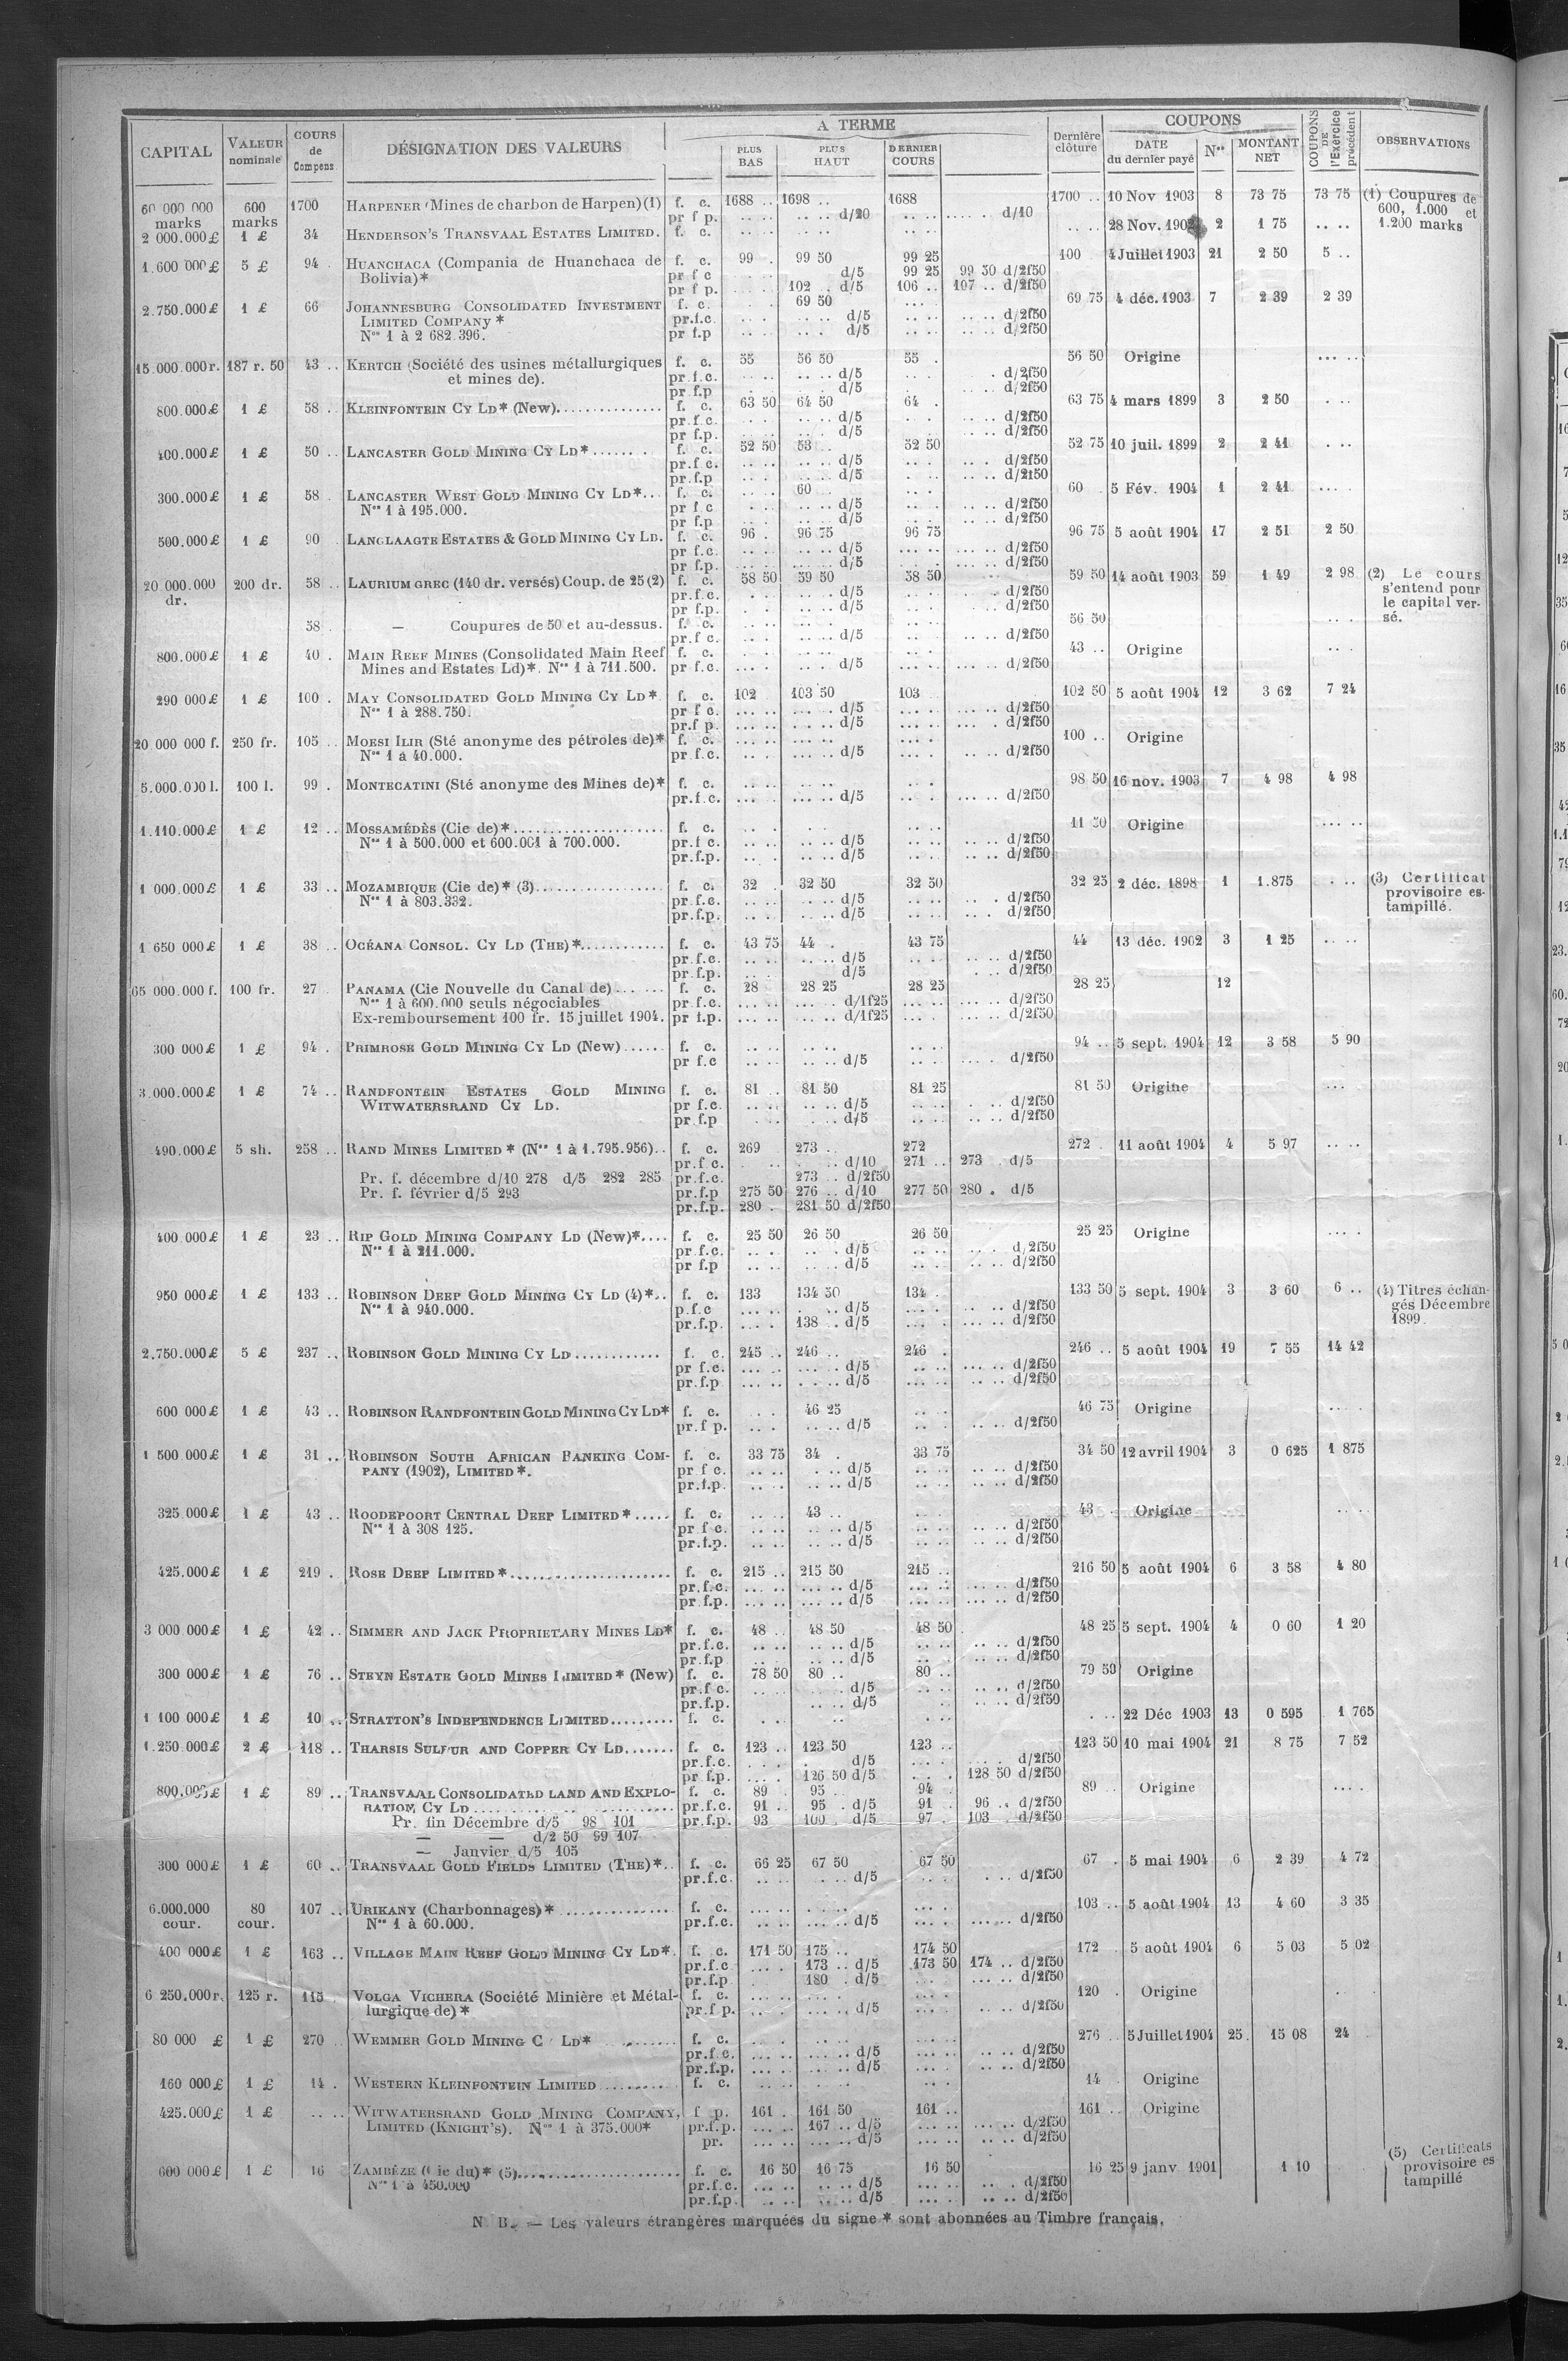 CAPITAL VALEUR nominale COURS de Compens. DÉSIGNATION DES VALEURS A TERME PLUS BAS PLUS HAUT DERNIER COURS Dernière clôture COUPONS DATE du dernier payé Nos MONTANT NET COUPONS DE l'Exercice précédent OBSERVATIONS
60 000 000 marks 600 marks 1700 HARPENER (Mines de charbon de Harpen) (1) f. c. 1688 .. 1698 .. 1688 1700 .. 10 Nov 1903 8 73 75 73 75 (1) Coupures de 600, 1.000 et 1.200 marks
pr f p. d/20 d/10
2 000.000 £ 1 £ 34 HENDERSON'S TRANSVAAL ESTATES LIMITED. f. c. 28 Nov. 1902 2 1 75
1.600 000 £ 5 £ 94 HUANCHACA (Compania de Huanchaca de f. c. 99 . 99 50 99 25 100 4 Juillet 1903 21 2 50 5 ..
Bolivia)* pr f c d/5 99 25 99 50 d/2f50
pr f p. 102 . d/5 106 .. 107 .. d/2f50
2.750.000 £ 1 £ 66 JOHANNESBURG CONSOLIDATED INVESTMENT f. c. 69 50 69 75 4 déc. 1903 7 2 39 2 39
LIMITED COMPANY * pr.f.c. d/5 d/2f50
Nos 1 à 2 682.396. pr f.p d/5 d/2f50
15.000.000 r. 187 r. 50 43 .. KERTCH (Société des usines métallurgiques f. c. 55 56 50 55 . 56 50 Origine
et mines de). pr.f.c. d/5 d/2f50
pr f.p d/5 d/2f50
800.000 £ 1 £ 58 .. KLEINFONTEIN CY LD* (New) f. c. 63 50 64 50 64 . 63 75 4 mars 1899 3 2 50
pr.f.c. d/5 d/2f50
pr f.p. d/5 d/2f50
400.000 £ 1 £ 50 .. LANCASTER GOLD MINING CY LD* f. c. 52 50 53 .. 52 50 52 75 10 juil. 1899 2 2 41
pr.f c. d/5 d/2f50
pr.f.p d/5 d/2f50
300.000 £ 1 £ 58 . LANCASTER WEST GOLD MINING CY LD* f. c. 60 .. 60 . 5 Fév. 1904 1 2 41
Nos 1 à 195.000. pr f c d/5 d/2f50
pr f.p d/5 d/2f50
500.000 £ 1 £ 90 . LANGLAAGTE ESTATES & GOLD MINING CY LD. f. c. 96 . 96 75 96 75 96 75 5 août 1904 17 2 51 2 50
pr f.c. d/5 d/2f50
pr f.p. d/5 d/2f50
20 000.000 dr. 200 dr. 58 .. LAURIUM GREC (140 dr. versés) Coup. de 25 (2) f. c. 58 50 59 50 58 50 59 50 14 août 1903 59 1 49 2 98 (2) Le cours s'entend pour le capital versé.
pr.f.c. d/5 d/2f50
pr f.p. d/5 d/2f50
58 — Coupures de 50 et au-dessus. f. c. 56 50
pr.f c. d/5 d/2f50
800.000 £ 1 £ 40 . MAIN REEF MINES (Consolidated Main Reef f. c. 43 .. Origine
Mines and Estates Ld)*. Nos 1 à 711.500. pr f.c. d/5 d/2f50
290 000 £ 1 £ 100 . MAY CONSOLIDATED GOLD MINING CY LD* f. c. 102 103 50 103 102 50 5 août 1904 12 3 62 7 24
Nos 1 à 288.750. pr f c. d/5 d/2f50
pr.f p. d/5 d/2f50
20.000 000 f. 250 fr. 105 .. MOESI ILIR (Sté anonyme des pétroles de)* f. c. 100 .. Origine
Nos 1 à 40.000. pr.f.c. d/5 d/2f50
5.000.000 l. 100 l. 99 . MONTECATINI (Sté anonyme des Mines de)* f. c. 98 50 16 nov. 1903 7 4 98 4 98
pr.f.c. d/5 d/2f50
1.110.000 £ 1 £ 12 .. MOSSAMÉDÈS (Cie de)* f. c. 11 50 Origine
Nos 1 à 500.000 et 600.001 à 700.000. pr.f c. d/5 d/2f50
pr.f.p. d/5 d/2f50
1 000.000 £ 1 £ 33 .. MOZAMBIQUE (Cie de)* (3) f. c. 32 . 32 50 32 50 32 25 2 déc. 1898 1 1.875 (3) Certificat provisoire estampillé.
Nos 1 à 803.332. pr f.c. d/5 d/2f50
pr.f.p. d/5 d/2f50
1 650 000 £ 1 £ 38 .. OCÉANA CONSOL. CY LD (THE)* f. c. 43 75 44 . 43 75 44 13 déc. 1902 3 1 25
pr.f.c. d/5 d/2f50
pr.f.p. d/5 d/2f50
65 000.000 f. 100 fr. 27 PANAMA (Cie Nouvelle du Canal de) f. c. 28 28 25 28 25 28 25 12
Nos 1 à 600.000 seuls négociables pr.f.c. d/1f25 d/2f50
Ex-remboursement 100 fr. 15 juillet 1904. pr f.p. d/1f25 d/2f50
300 000 £ 1 £ 94 . PRIMROSE GOLD MINING CY LD (New) f. c. 94 .. 5 sept. 1904 12 3 58 5 90
pr f.c d/5 d/2f50
3.000.000 £ 1 £ 74 .. RANDFONTEIN ESTATES GOLD MINING f. c. 81 .. 81 50 81 25 81 50 Origine
WITWATERSRAND CY LD. pr f.c. d/5 d/2f50
pr f.p d/5 d/2f50
490.000 £ 5 sh. 258 .. RAND MINES LIMITED * (Nos 1 à 1.795.956) f. c. 269 273 .. 272 272 . 11 août 1904 4 5 97
pr.f c. d/10 271 .. 273 . d/5
Pr. f. décembre d/10 278 d/5 282 285 pr.f.c. 273 .. d/2f50
Pr. f. février d/5 293 pr.f.p 275 50 276 .. d/10 277 50 280 . d/5
pr.f.p. 280 . 281 50 d/2f50
400.000 £ 1 £ 23 .. RIP GOLD MINING COMPANY LD (New)* f. c. 25 50 26 50 26 50 25 25 Origine
Nos 1 à 211.000. pr f.c. d/5 d/2f50
pr f.p d/5 d/2f50
950 000 £ 1 £ 133 .. ROBINSON DEEP GOLD MINING CY LD (4)* f. c. 133 134 50 134 . 133 50 5 sept. 1904 3 3 60 6 .. (4) Titres échangés Décembre 1899.
Nos 1 à 940.000. p.f.c d/5 d/2f50
pr.f.p. 138 .. d/5 d/2f50
2.750.000 £ 5 £ 237 .. ROBINSON GOLD MINING CY LD f. c. 245 .. 246 .. 246 . 246 .. 5 août 1904 19 7 55 14 42
pr f.c. d/5 d/2f50
pr.f.p d/5 d/2f50
600 000 £ 1 £ 43 .. ROBINSON RANDFONTEIN GOLD MINING CY LD* f. c. 46 25 46 75 Origine
pr.f p. d/5 d/2f50
1 500 000 £ 1 £ 31 .. ROBINSON SOUTH AFRICAN BANKING COM- f. c. 33 75 34 . 33 75 34 50 12 avril 1904 3 0 625 1 875
PANY (1902), LIMITED*. pr f c. d/5 d/2f50
pr.f.p. d/5 d/2f50
325.000 £ 1 £ 43 .. ROODEPOORT CENTRAL DEEP LIMITED* f. c. 43 .. 43 . Origine
Nos 1 à 308 125. pr f c. d/5 d/2f50
pr.f.p. d/5 d/2f50
425.000 £ 1 £ 219 . ROSE DEEP LIMITED* f. c. 215 .. 215 50 215 .. 216 50 5 août 1904 6 3 58 4 80
pr.f.c. d/5 d/2f50
pr.f.p. d/5 d/2f50
3 000 000 £ 1 £ 42 .. SIMMER AND JACK PROPRIETARY MINES LD* f. c. 48 .. 48 50 48 50 48 25 5 sept. 1904 4 0 60 1 20
pr.f.c. d/5 d/2f50
pr.f.p d/5 d/2f50
300 000 £ 1 £ 76 .. STEYN ESTATE GOLD MINES LIMITED* (New) f. c. 78 50 80 .. 80 .. 79 50 Origine
pr.f c. d/5 d/2f50
pr.f.p. d/5 d/2f50
1 100 000 £ 1 £ 10 .. STRATTON'S INDEPENDENCE LIMITED f. c. 22 Déc 1903 13 0 595 1 765
1.250.000 £ 2 £ 118 .. THARSIS SULFUR AND COPPER CY LD f. c. 123 .. 123 50 123 .. 123 50 10 mai 1904 21 8 75 7 52
pr.f.c. d/5 d/2f50
pr f.p. 126 50 d/5 128 50 d/2f50
800.000 £ 1 £ 89 .. TRANSVAAL CONSOLIDATED LAND AND EXPLO- f. c. 89 . 95 94 . 89 .. Origine
RATION CY LD pr.f.c. 91 .. 95 . d/5 91 .. 96 .. d/2f50
Pr. fin Décembre d/5 98 101 pr.f.p. 93 100 . d/5 97 . 103 . d/2f50
— — d/2 50 99 107
— Janvier d/5 105
300 000 £ 1 £ 60 .. TRANSVAAL GOLD FIELDS LIMITED (THE)* f. c. 66 25 67 50 67 50 67 . 5 mai 1904 6 2 39 4 72
pr.f.c. d/5 d/2f50
6.000.000 cour. 80 cour. 107 .. URIKANY (Charbonnages)* f. c. 103 .. 5 août 1904 13 4 60 3 35
Nos 1 à 60.000. pr.f.c. d/5 d/2f50
400 000 £ 1 £ 163 .. VILLAGE MAIN REEF GOLD MINING CY LD* f. c. 171 50 175 .. 174 50 172 . 5 août 1904 6 5 03 5 02
pr.f.c 173 .. d/5 173 50 174 .. d/2f50
pr.f.p 180 . d/5 d/2f50
6 250.000 r. 125 r. 115 VOLGA VICHERA (Société Minière et Métal- f. c. 120 . Origine
lurgique de)* pr.f p. d/5 d/2f50
80 000 £ 1 £ 270 WEMMER GOLD MINING C LD* f. c. 276 .. 5 Juillet 1904 25 15 08 24
pr.f.c. d/5 d/2f50
pr.f.p. d/5 d/2f50
160 000 £ 1 £ 14 . WESTERN KLEINFONTEIN LIMITED f. c. 14 . Origine
425.000 £ 1 £ .. .. WITWATERSRAND GOLD MINING COMPANY, f p. 161 . 161 50 161 .. 161 .. Origine
LIMITED (KNIGHT'S). Nos 1 à 375.000* pr.f.p. 167 .. d/5 d/2f50
pr. d/5 d/2f50
600 000 £ 1 £ 16 ZAMBÈZE (Cie du)* (5) f. c. 16 50 16 75 16 50 16 25 9 janv 1901 1 10 (5) Certificats provisoire es tampillé
Nos 1 à 450.000 pr.f.c. d/5 d/2f50
pr.f.p. d/5 d/2f50
N. B. — Les valeurs étrangères marquées du signe * sont abonnées au Timbre français.